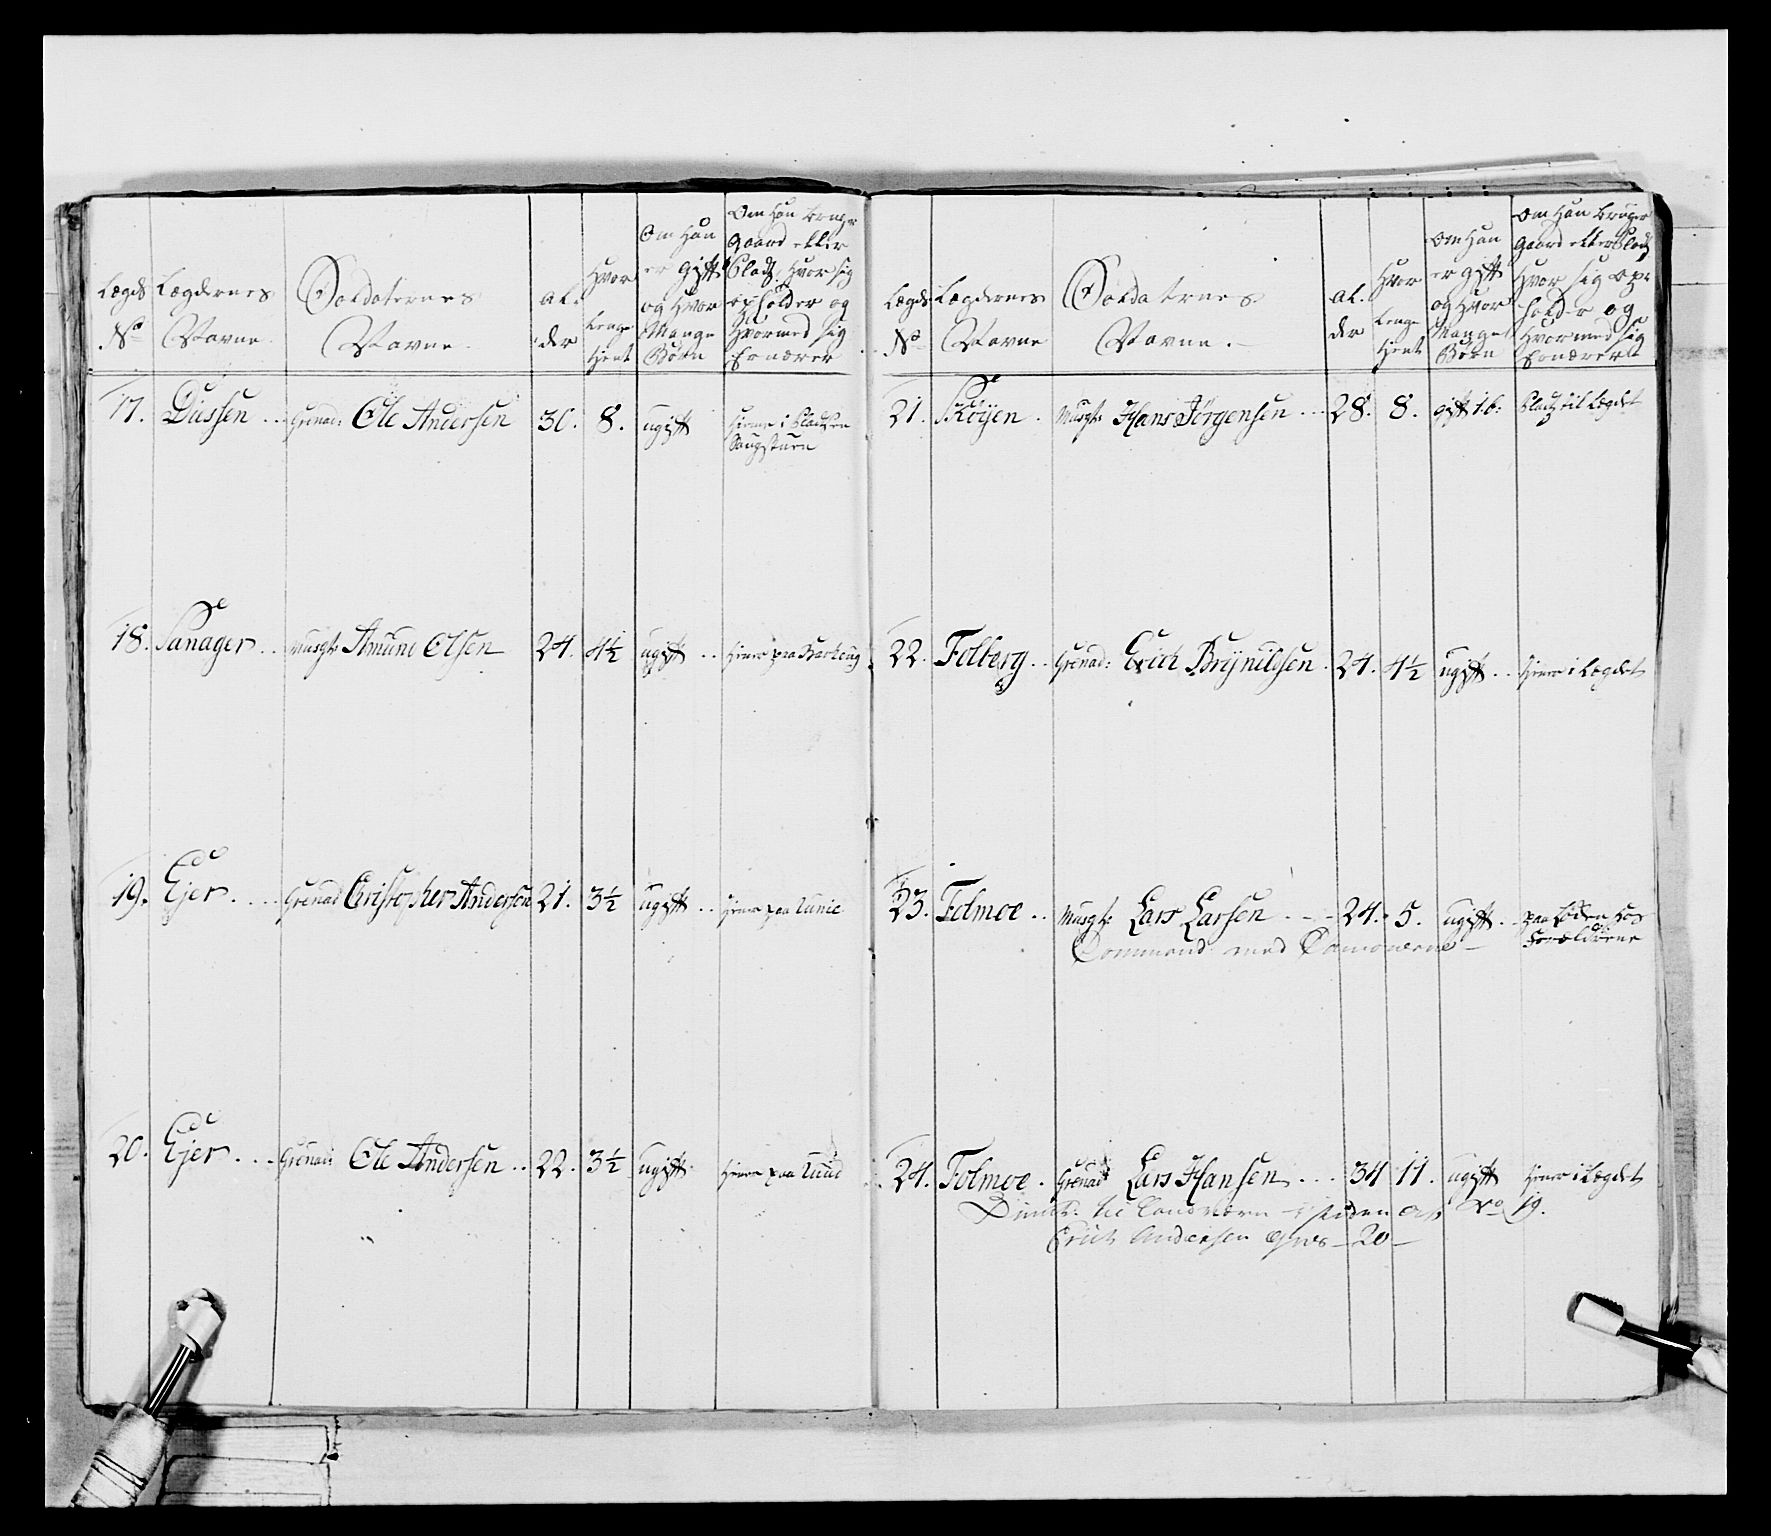 Lægds
No
Lægdernes
Navne
Soldaternes
Navne
Al-
der
Hvor
Lenge
tient
Om Han
er Gift
og Hvor
Mange
Børn
Om Han Bruger
Gaard eller
Plads, Hvor sig
opholder og
Hvormed sig
Ernærer
17. Diessen .. Grenad: Ole Andersen 30. 8. ugift tiener i Pladsen
18. Sanager .. Musqt: Amund Olsen 24. 4½ ugift .. tiener paa
19. Ejer .... Grenad Christopher Andersen 21. 3½ ugift .. tiener paa Lunie
20. Ejer ... Grenad: Ole Andersen .. 22. 3½ ugift. tiener paa Lund
Lægds
No
Lægdernes
Navne
Soldaternes
Navne.
Al-
der
Hvor
Lenge
tient
Om Han
er gift
og Hvor
Mange
Børn
Om Han Bruger
Gaard eller Plads
Hvor sig op-
holder og
Hvormed sig
Ernærer
21. Skøyen . Musqt: Hans Jørgensen ... 28. 8. gift 1.b: Plads til Lægdet
22. Folberg .. Grenad: Erich Brÿnildsen . 24. 4½ ugift .. tiener i Lægdet
23. Folmoe .. Musqt: Lars Larsen ... 24. 5. ugift .. paa Løden hos
Forældrene
Command: med
24. Folmoe . Grenad Lars Hansen ... 34 11. ugift tiener i Lægdet
til Landværn No 19.
Erich Andersen 20 —